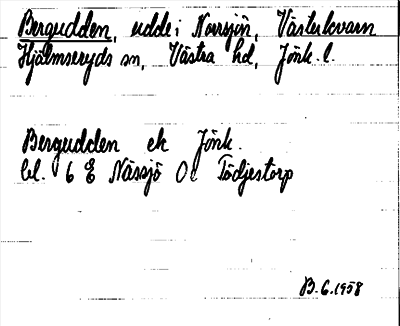 Bergudden, udde i Norrsjön, Västerkvarn
Hjälmseryds sn, Västra hd, Jönk. l.
Bergudden ek Jönk.
bl. 6 E Nässjö 0 c Tödjestorp
B. 6. 1958